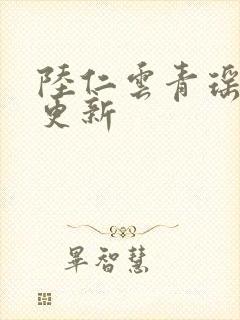 陸仁雲青瑶
更新
畢智慧